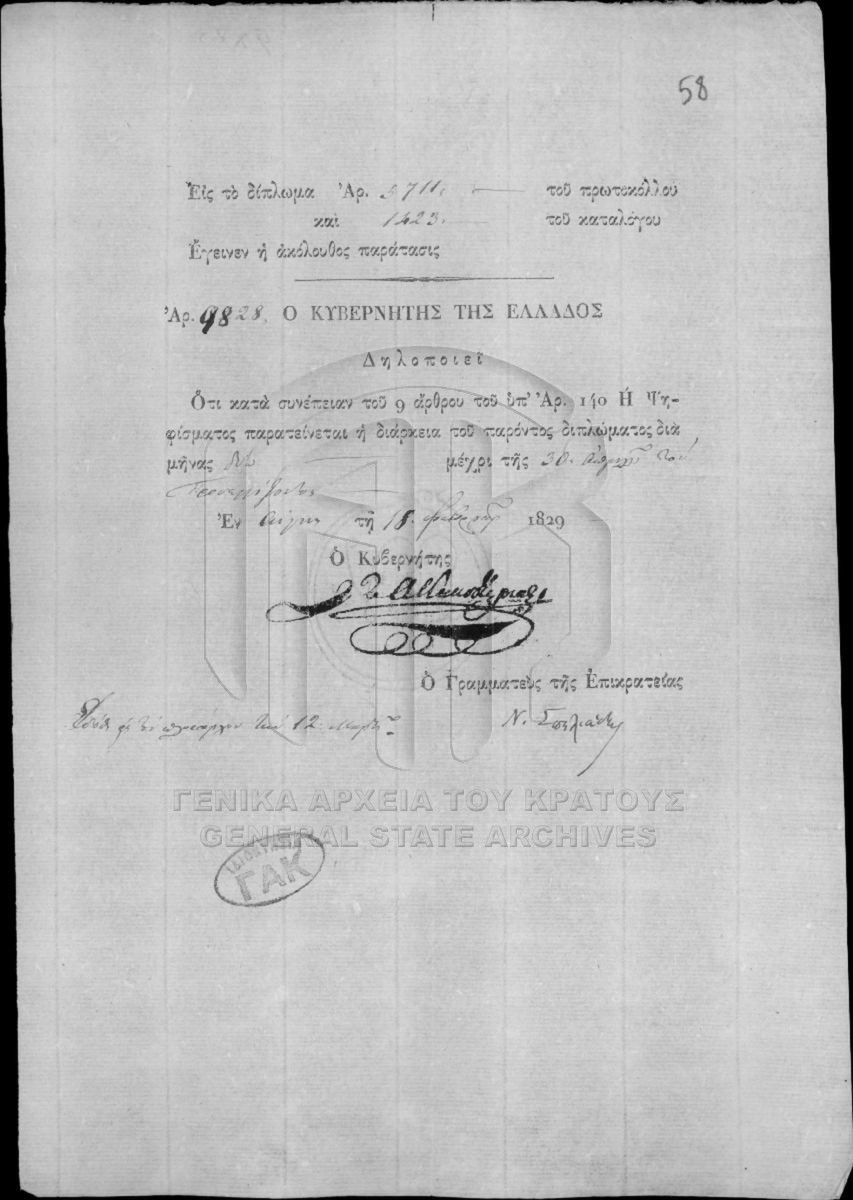 58
Εἰς τὸ δίπλωμα Ἀρ. 5711. τοῦ πρωτοκόλλου
καὶ 1423. τοῦ καταλόγου
Ἔγεινεν ἡ ἀκόλουθος παράτασις
Ἀρ. 9828. Ο ΚΥΒΕΡΝΗΤΗΣ ΤΗΣ ΕΛΛΑΔΟΣ
Δηλοποιεῖ
Ὅτι κατὰ συνέπειαν τοῦ 9 ἄρθρου τοῦ ὑπ' Ἀρ. 140 Ἡ Ψη-
φίσματος παρατείνεται ἡ διάρκεια τοῦ παρόντος διπλώματος διὰ
μῆνας δύο μέχρι τῆς 30. ἀπριλ. τοῦ
Ἐν Αἰγίνῃ τῇ 18. φεβρ. 1829
Ὁ Κυβερνήτης
Ι. Α. Καποδίστριας
Ὁ Γραμματεὺς τῆς Ἐπικρατείας
Ν. Σπηλιάδης
τὴν 12 Μαρτ.
ΓΕΝΙΚΑ ΑΡΧΕΙΑ ΤΟΥ ΚΡΑΤΟΥΣ
GENERAL STATE ARCHIVES
ΓΑΚ